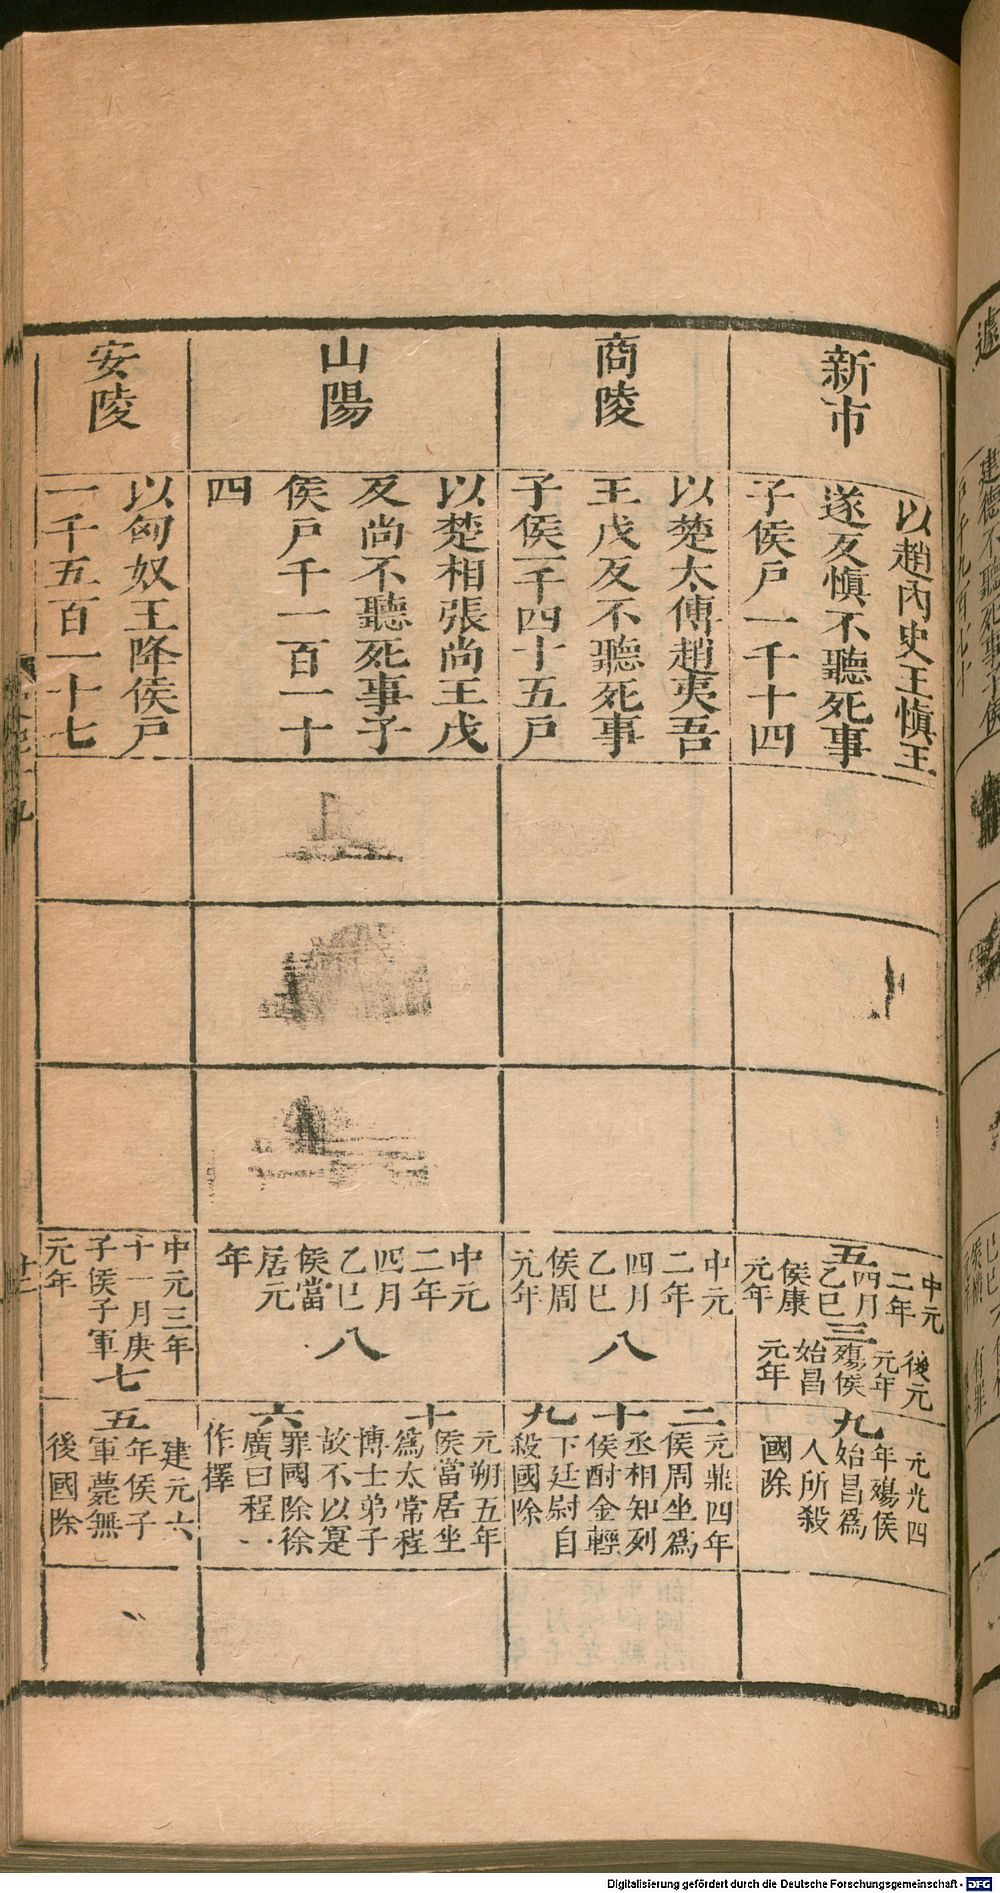 新市
以趙內史王愼王
遂反愼不聽死事
子侯戶一千十四
五
中元
二年
四月
乙巳
侯康
元年
三
後元
元年
殤侯
始昌
元年
九
元光四
年殤侯
始昌爲
人所殺
國除
商陵
以楚太傅趙夷吾
王戊反不聽死事
子侯一千四十五戶
中元
二年
四月
乙巳
侯周
元年
八
二十九
元鼎四年
侯周坐爲
丞相知列
侯酎金輕
下廷尉自
殺國除
山陽
以楚相張尚王戊
反尚不聽死事子
侯戶千一百一十
四
中元
二年
四月
乙巳
侯當
居元
年
八
十六
元朔五年
侯當居坐
爲太常程
博士弟子
故不以寔
罪國除徐
廣曰程一
作擇
安陵
以匈奴王降侯戶
一千五百一十七
中元三年
十一月庚
子侯子軍
元年
七
五
建元六
年侯子
軍薨無
後國除
Digitalisierung gefördert durch die Deutsche Forschungsgemeinschaft - DFG